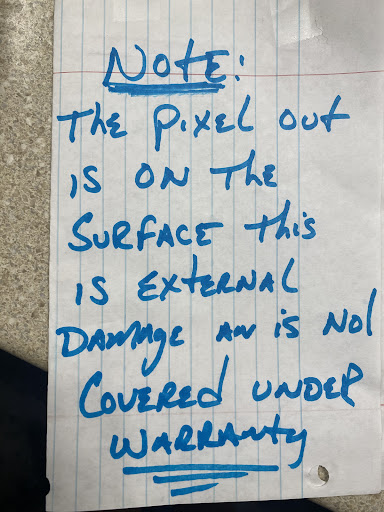 Note:
The Pixel out
is on the
Surface this
is external
Damage an is Not
Covered under
Warranty